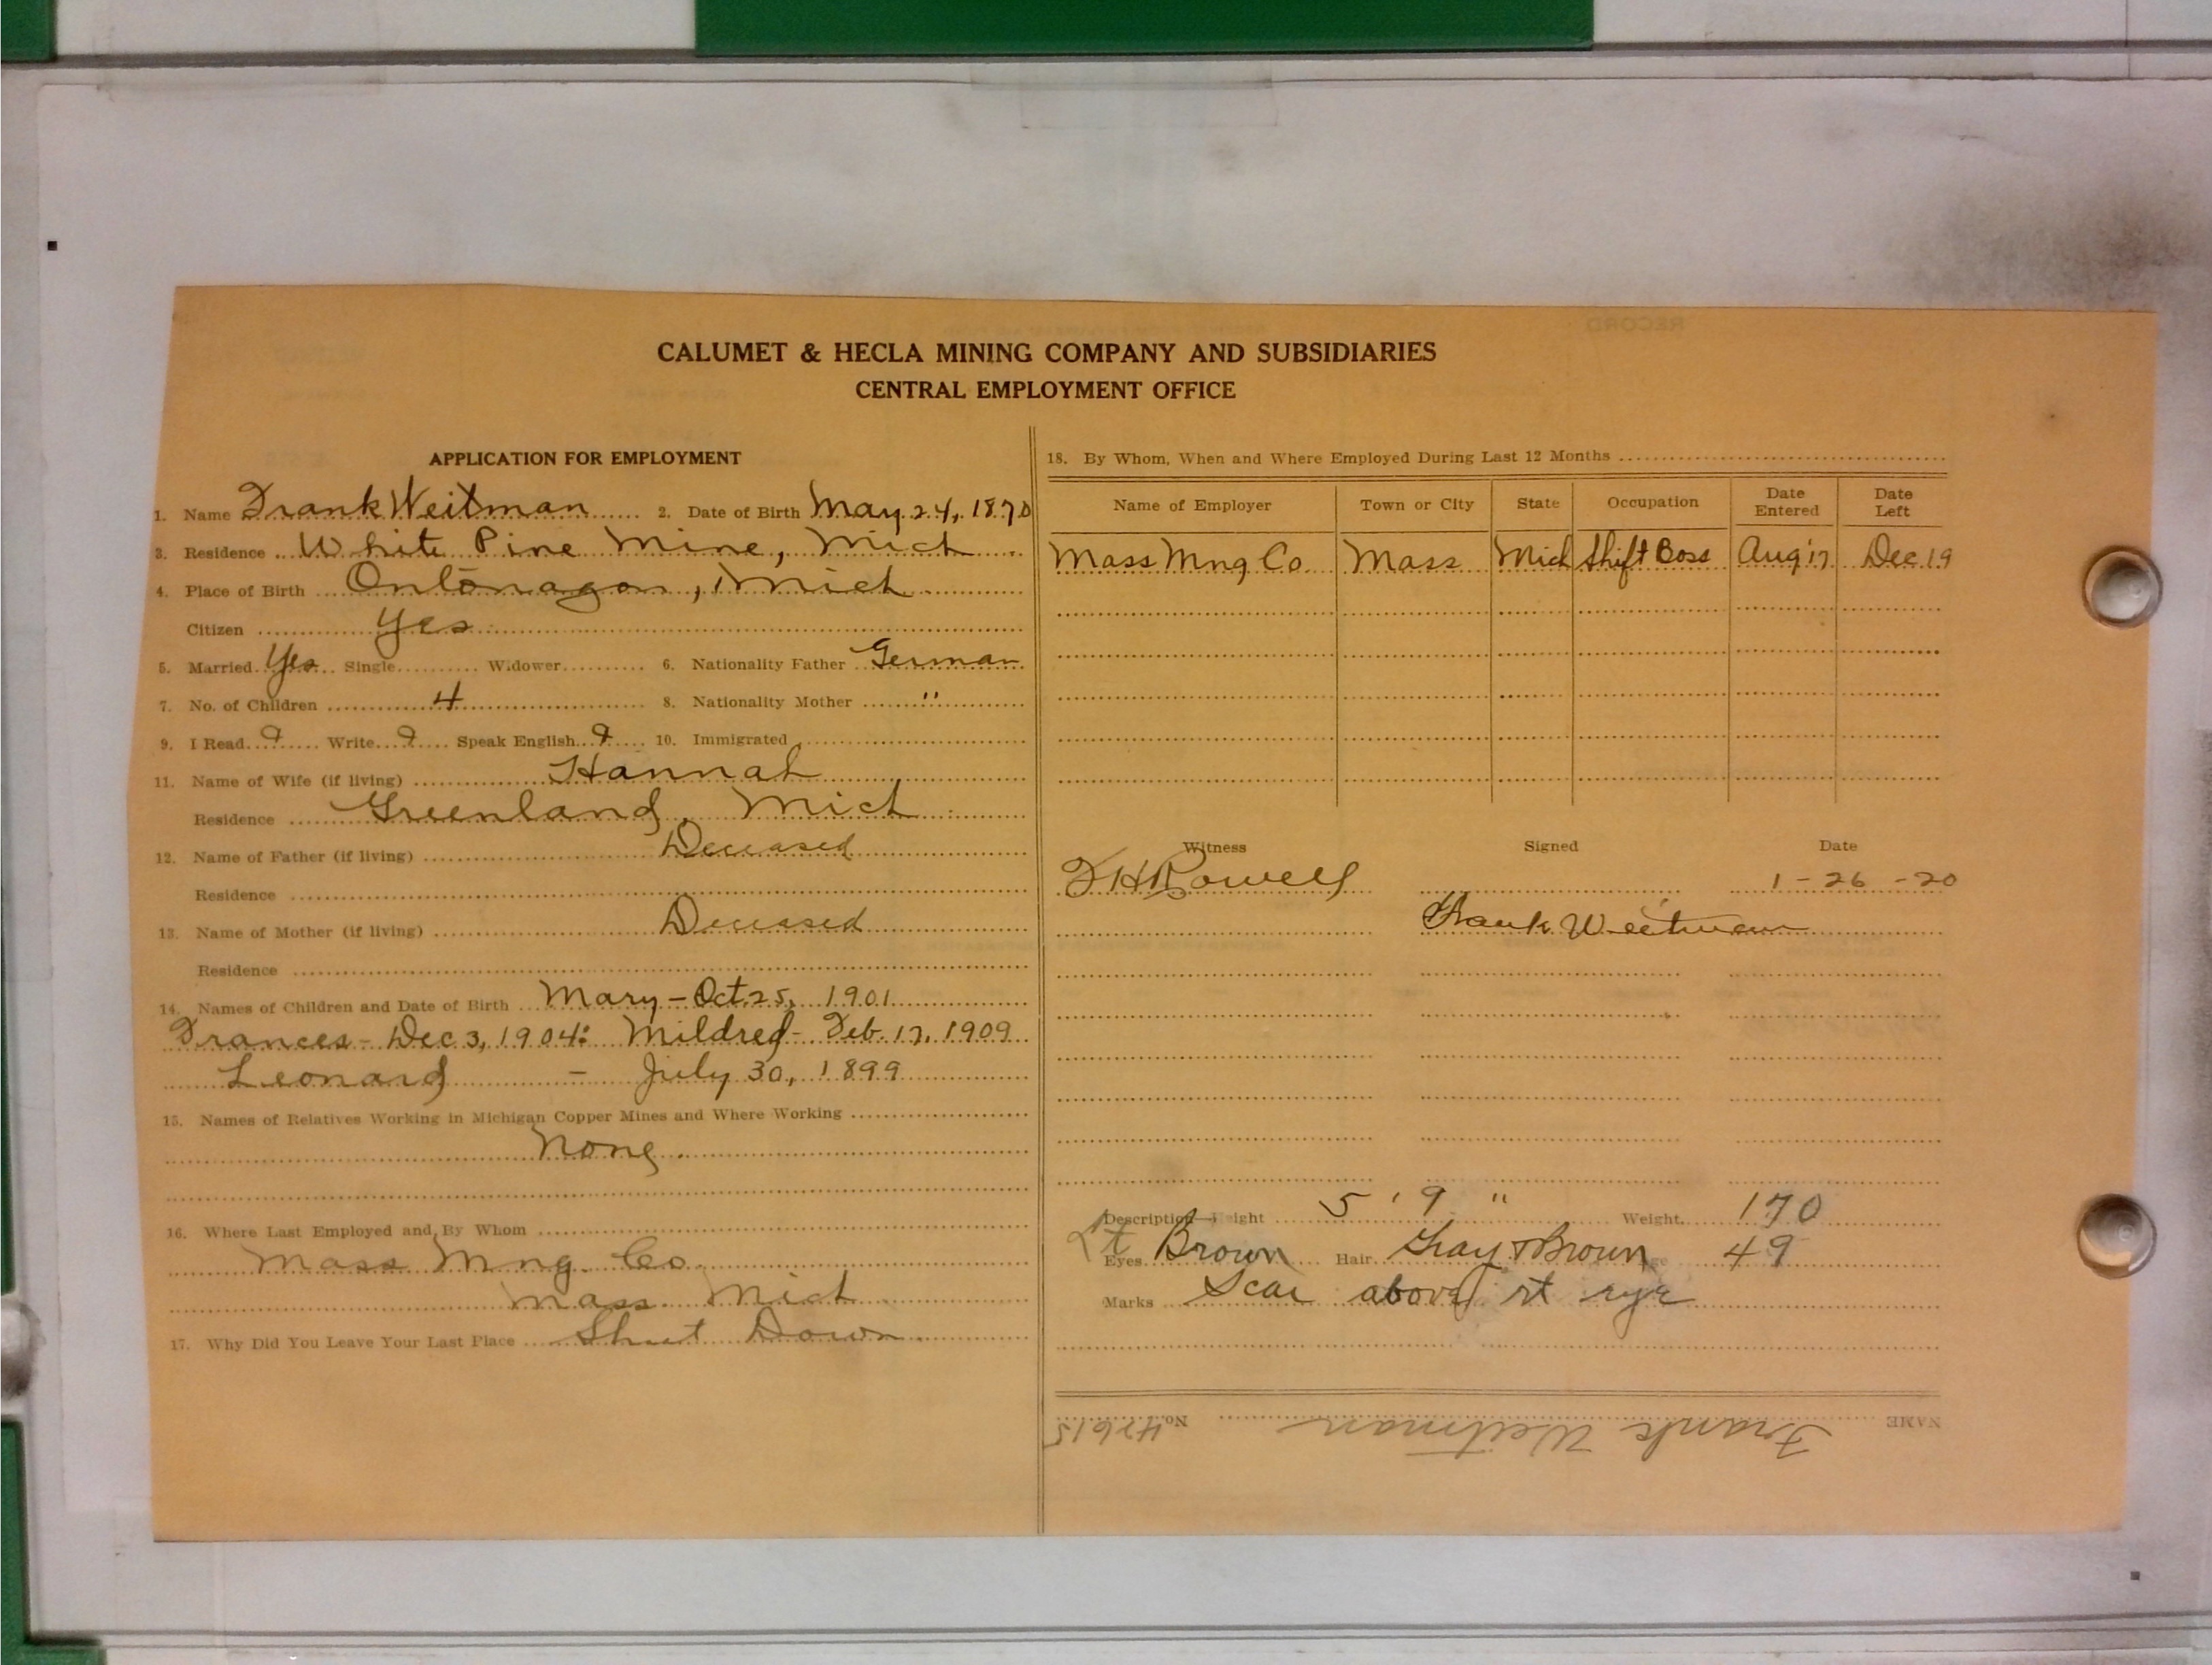 CALUMET & HECLA MINING COMPANY AND SUBSIDIARIES
CENTRAL EMPLOYMENT OFFICE
APPLICATION FOR EMPLOYMENT
1. Name Frank Weitman 2. Date of Birth May 24, 1870
3. Residence White Pine Mine, Mich
4. Place of Birth Ontonagon, Mich
Citizen Yes
5. Married Yes Single Widower 6. Nationality Father German
7. No. of Children 4 8. Nationality Mother "
9. I Read Write Speak English 10. Immigrated
11. Name of Wife (if living) Hannah
Residence Greenland, Mich
12. Name of Father (if living) Deceased
Residence
13. Name of Mother (if living) Deceased
Residence
14. Names of Children and Date of Birth Mary - Oct. 25, 1901
Frances - Dec 3, 1904: Mildred - Feb. 17, 1909
Leonard - July 30, 1899
15. Names of Relatives Working in Michigan Copper Mines and Where Working
None
16. Where Last Employed and By Whom
Mass Mng. Co
Mass Mich
17. Why Did You Leave Your Last Place Shut Down
18. By Whom, When and Where Employed During Last 12 Months
Name of Employer Town or City State Occupation Date Entered Date Left
Mass Mng Co Mass Mich Shift Boss Aug 17 Dec 19
Witness Signed Date
F H Rowell 1-26-20
Frank Weitman
Description—Height 5' 9" Weight 170
Eyes Lt Brown Hair Gray & Brown Age 49
Marks Scar above rt eye
NAME Frank Weitman No. 47615